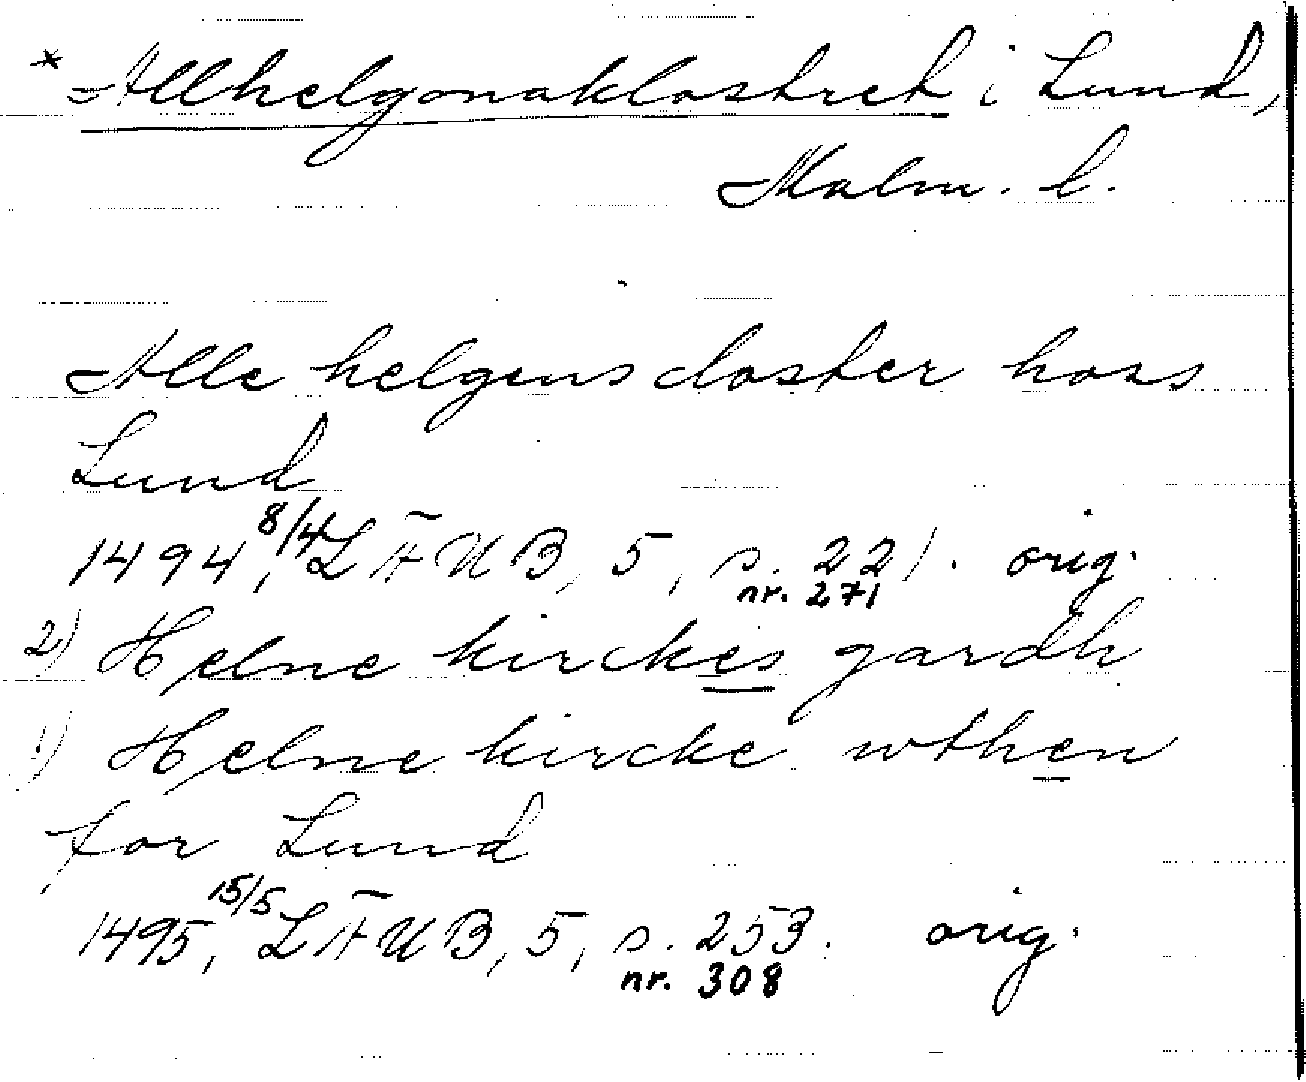 * Allhelgonaklostret i Lund,
Malm. l.
Alle helgens closter hoss
Lund
1494, 8/4 LÄUB, 5, s. 221. orig.
nr. 271
2) Helne kirckes gardh
1) Helne kircke wthen
for Lund
1495, 15/5 LÄUB, 5, s. 253. orig.
nr. 308